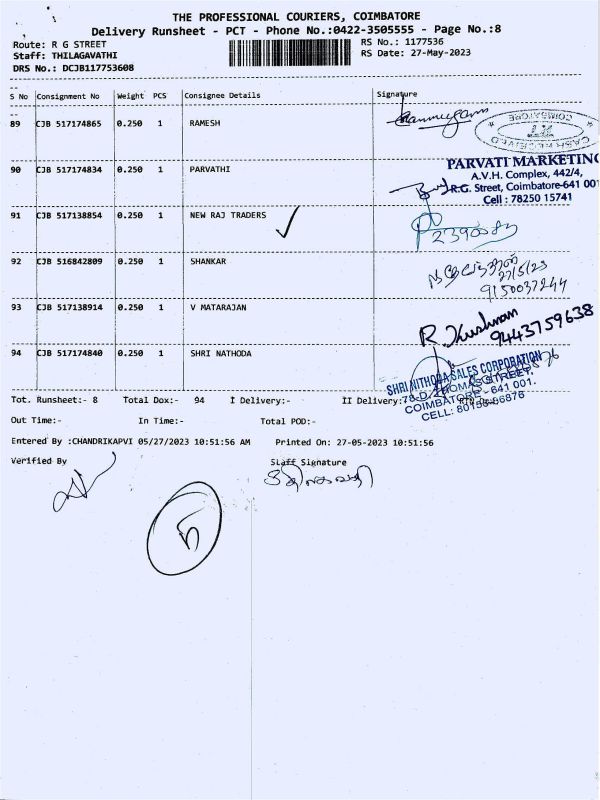 THE PROFESSIONAL COURIERS, COIMBATORE
Delivery Runsheet - PCT - Phone No.:0422-3505555 - Page No.:8
Route: R G STREET
RS No.: 1177536
Staff: THILAGAVATHI
RS Date: 27-May-2023
DRS No.: DCJB117753608
S No Consignment No Weight PCS Consignee Details Signature
89 CJB 517174865 0.250 1 RAMESH
COIMBATORE
CASH RECEIVED
90 CJB 517174834 0.250 1 PARVATHI
PARVATI MARKETING
A.V.H. Complex, 442/4,
R.G. Street, Coimbatore-641 001
Cell : 78250 15741
91 CJB 517138854 0.250 1 NEW RAJ TRADERS
92 CJB 516842809 0.250 1 SHANKAR
27/5/23
9150037244
93 CJB 517138914 0.250 1 V MATARAJAN
R. Krishnan
9443759638
94 CJB 517174840 0.250 1 SHRI NATHODA
SHRI NITHODA SALES CORPORATION
78-D, THOMAS STREET,
COIMBATORE - 641 001.
CELL: 80158-86876
Tot. Runsheet:- 8 Total Dox:- 94 I Delivery:- II Delivery:-
Out Time:- In Time:- Total POD:-
Entered By :CHANDRIKAPVI 05/27/2023 10:51:56 AM Printed On: 27-05-2023 10:51:56
Verified By Staff Signature